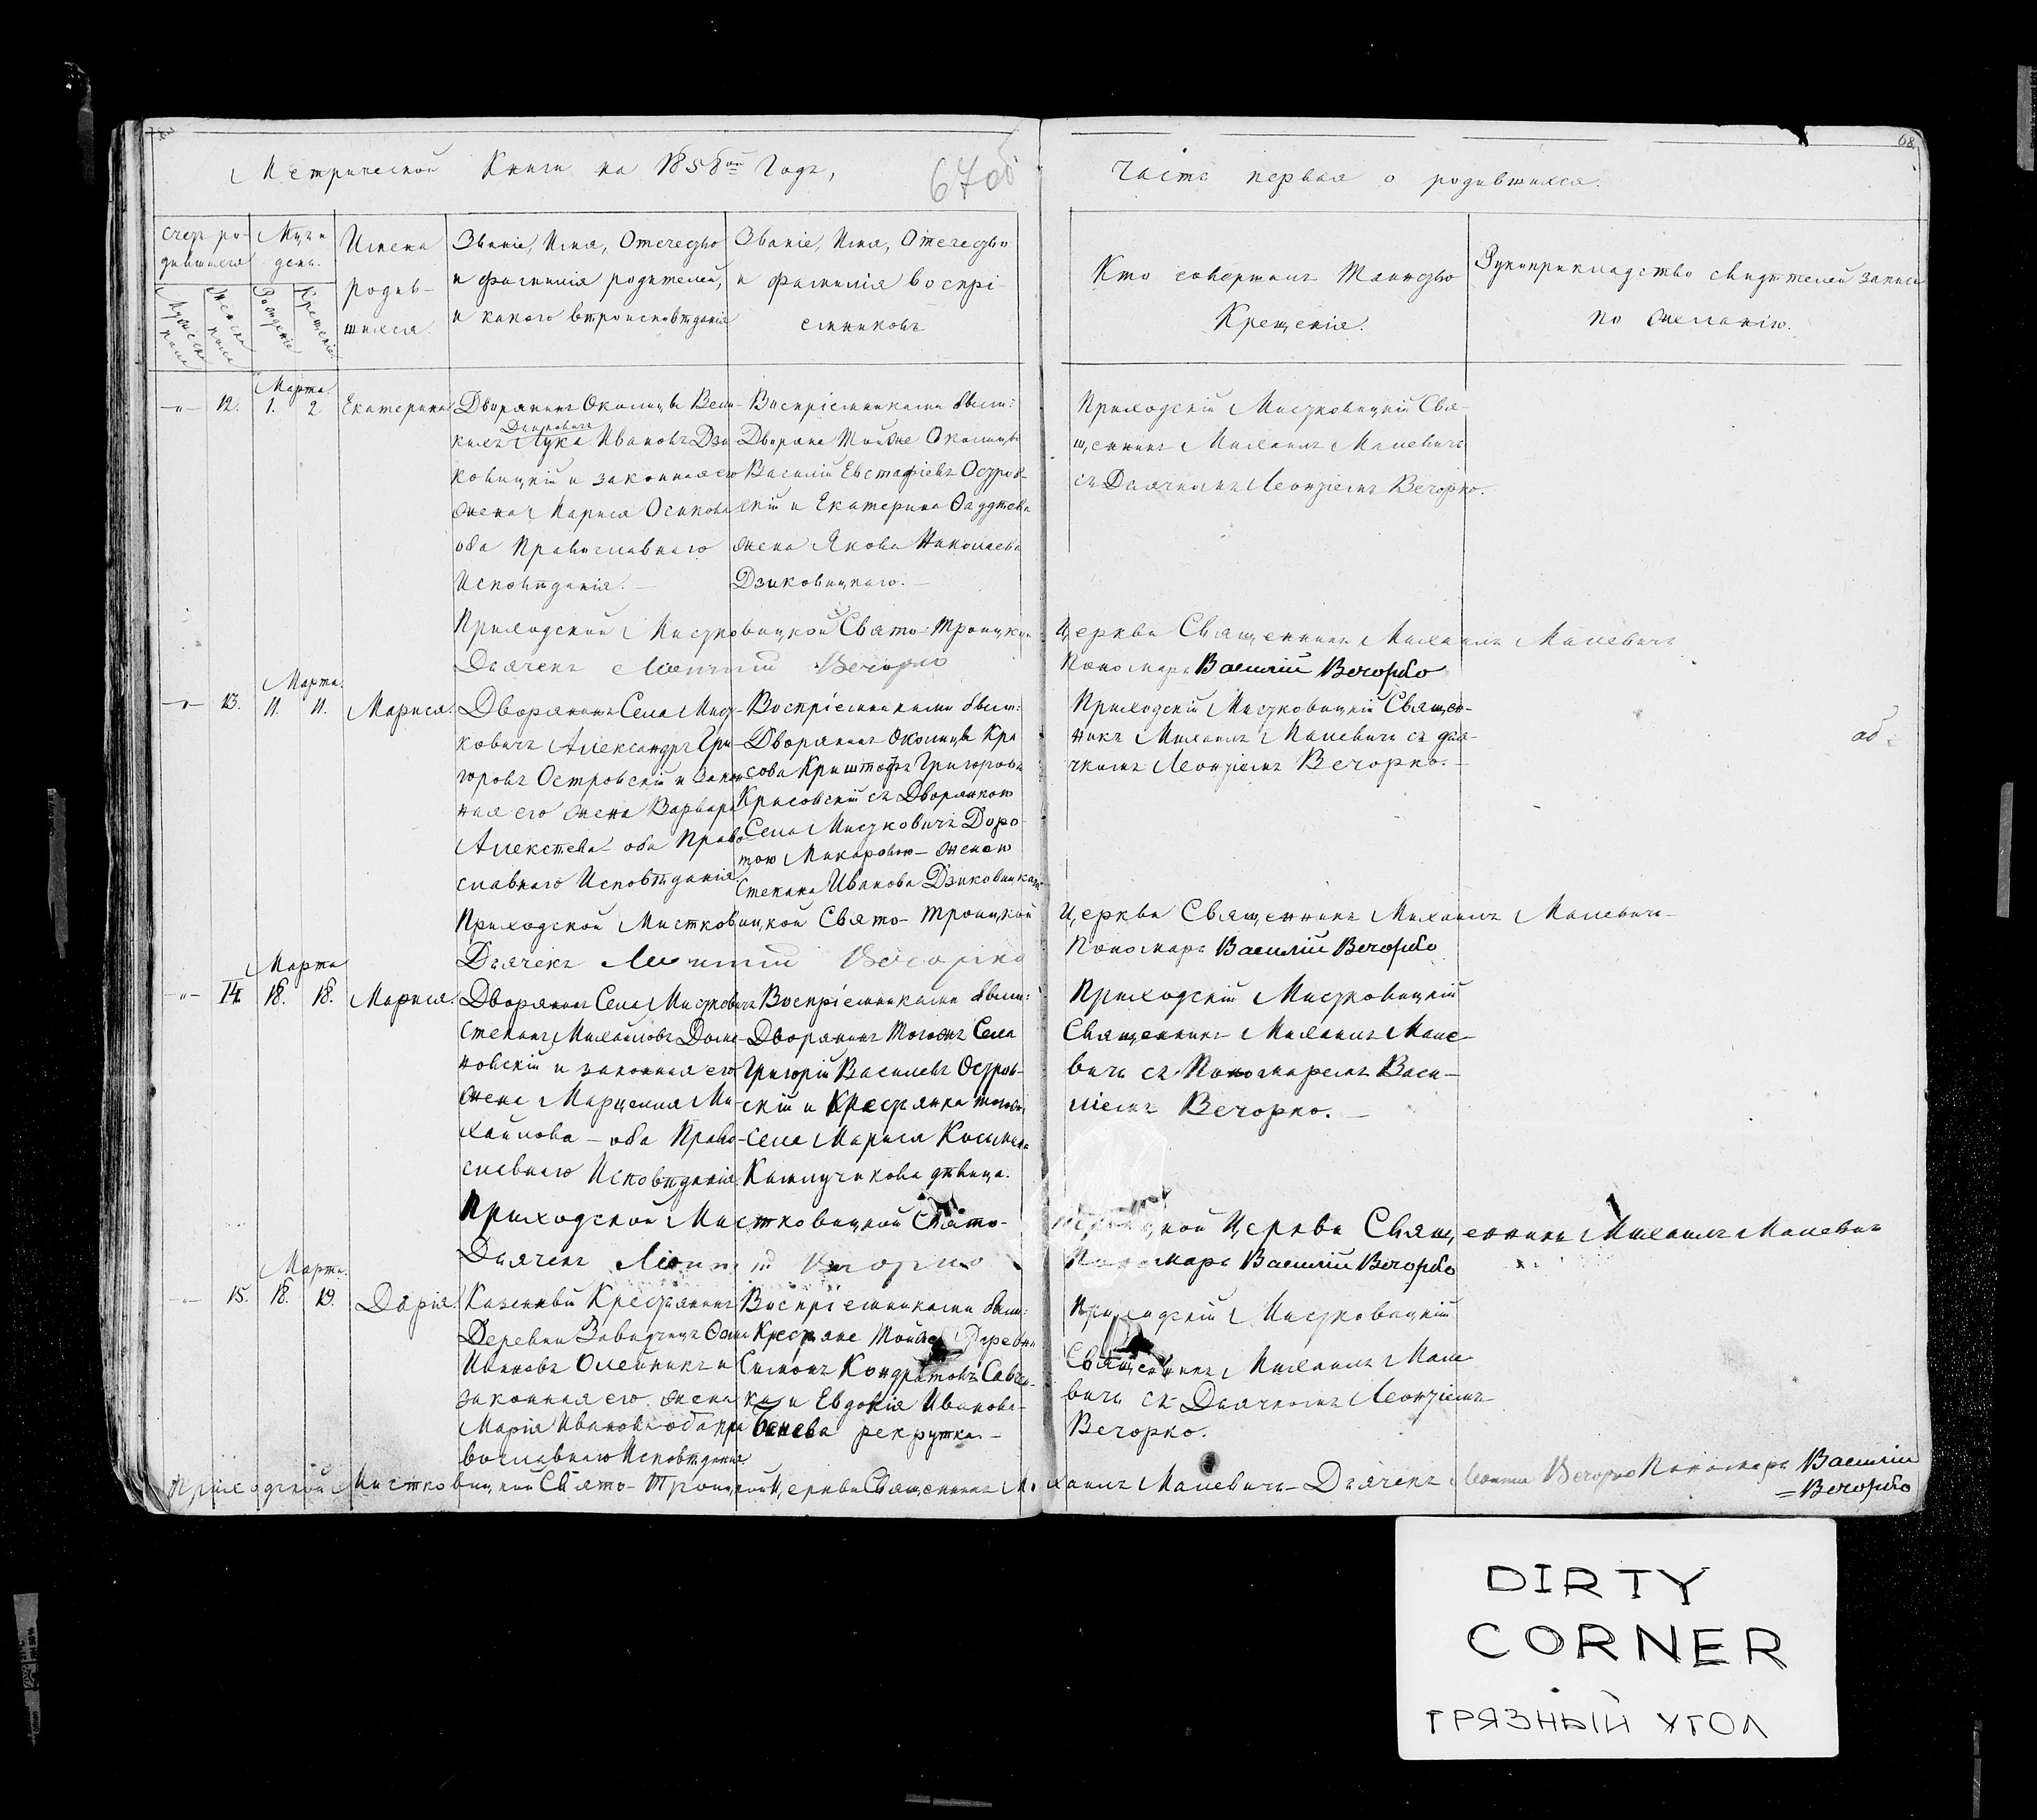 Метрической Книги на 1858ой Годъ,
67об
Часть первая о родившихся.
68
Счетъ ро-
дившихся
Мужеска
пола
Женска
пола
Мцъ и
день.
Рожденія
Крещенія
Имена
родив-
шихся.
Званіе, Имя, Отечество
и фамилія родителей,
и какого вѣроисповѣданія
Званіе, Имя, Отечество
и фамилія воспрі-
емниковъ
Кто совершалъ Таинство
Крещенія.
Рукоприкладство свидѣтелей записи
по желанію.
Марта
-"- 12. 1. 2 Екатерина.
Дворянинъ Околицы Вели-
Лука Ивановъ Дзи-
ковицкій и законная его
жена Марія Осипова
оба Православнаго
Исповѣданія. —
Воспріемниками были:
Дворяне Тойже Околицы
Василій Евстафіевъ Остров-
скій и Екатерина Фаддѣева
жена Якова Николаева
Дзиковицкаго. —
Приходскій Мистковицкій Свя-
щенникъ Михаилъ Малевичъ
съ Дьячкомъ Леонтіемъ Вечорко.
Приходской Мистковицкой Свято-Троицкой Церкви Священникъ Михаилъ Малевичъ
Дьячекъ Леонтій Вечорко Пономарь Василій Вечорко
Марта.
-"- 13. 11. 11. Марія.
Дворянинъ Села Мист-
ковичъ Александръ Гри-
горовъ Островскій и закон-
ная его жена Варвара
Алексѣева оба Право-
славнаго Исповѣданія.
Воспріемниками были:
Дворянинъ Околицы Кра
сова Криштофъ Григоровъ
Красовскій съ Дворянкою
Села Мистковичъ Доро-
тою Макаровою — женою
Степана Иванова Дзиковицкаго
Приходскій Мистковицкій Священ-
никъ Михаилъ Малевичъ съ дья-
чкомъ Леонтіемъ Вечорко. —
об
Приходской Мистковицкой Свято-Троицкой Церкви Священникъ Михаилъ Малевичъ
Дьячекъ Леонтій Вечорко Пономарь Василій Вечорко
Марта
-"- 14. 18. 18. Марія.
Дворянинъ Села Мистковичъ
Степанъ Михайловъ Дома-
новскій и законная его
жена Марцелла Ми-
хайлова — оба Право-
славнаго Исповѣданія.
Воспріемниками были:
Дворянинъ Тогожъ Села
Григорій Васильевъ Остров-
скій и Крестьянка тогожъ
села Марія
дѣвица.
Приходскій Мистковицкій
Священникъ Михаилъ Мале-
вичъ съ Пономаремъ Васи-
ліемъ Вечорко. —
Приходской Мистковицкой Свято-Троицкой Церкви Священникъ Михаилъ Малевичъ
Дьячекъ Леонтій Вечорко Пономарь Василій Вечорко
Марта.
-"- 15. 18. 19. Дарія.
Казенный Крестьянинъ
Деревни Завидчицъ
Ивановъ Олейникъ и
законная его жена
Марія Иванова оба Пра
вославнаго Исповѣданія.
Воспріемниками были:
Крестьяне Тойже Деревни
Симонъ Кондратовъ
и Евдокія Иванова
рекрутка. —
Приходскій Мистковицкій
Священникъ Михаилъ Мале
вичъ съ Дьячкомъ Леонтіемъ
Вечорко.
Приходской Мистковицкой Свято-Троицкой Церкви Священникъ Михаилъ Малевичъ Дьячекъ Леонтій Вечорко Пономарь Василій
=Вечорко
DIRTY
CORNER
ГРЯЗНЫЙ УГОЛ